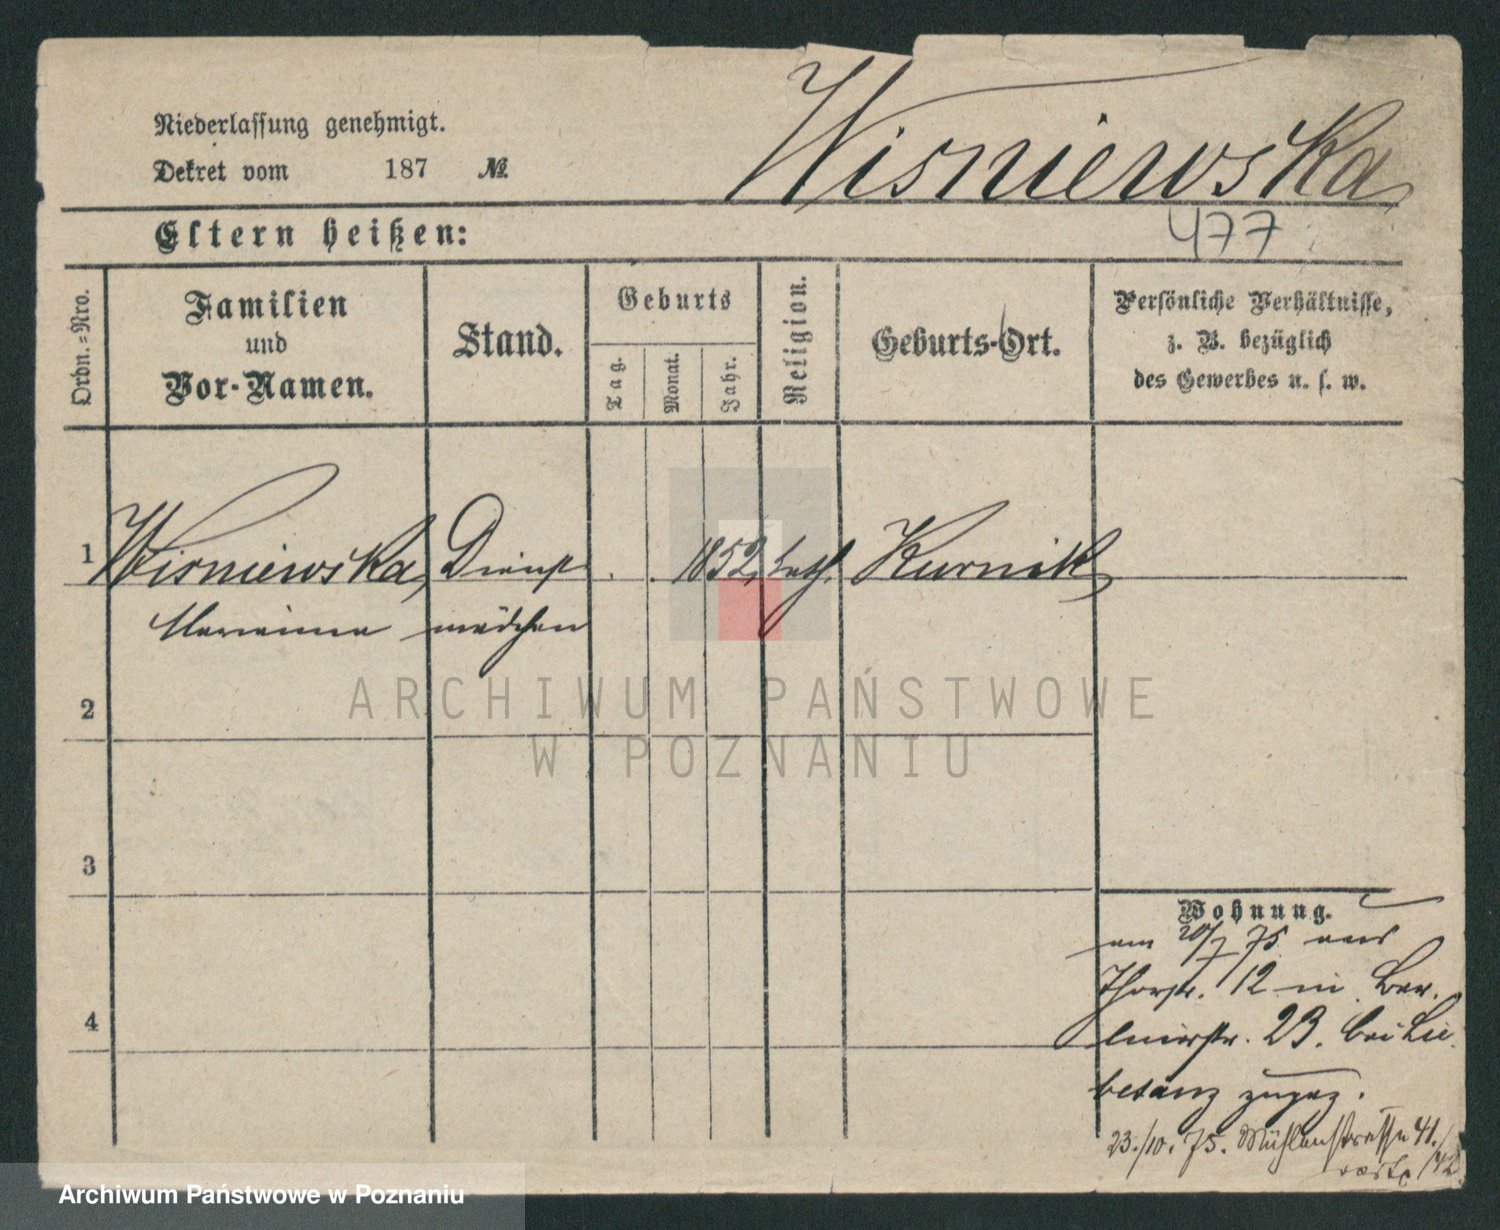 Wisniewska
Niederlassung genehmigt.
Dekret vom 187 №
477
Eltern heißen:
Ordn.=Nro.
Familien
und
Vor-Namen.
Stand.
Geburts
Tag.
Monat.
Jahr.
Religion.
Geburts-Ort.
Persönliche Verhältnisse,
z. B. bezüglich
des Gewerbes u. s. w.
1 Wisniewska Dienst 1852, kath. Kurnik
Marianna mädchen
2
3
4
Wohnung.
am 20/7 75 aus
Thorstr. 12 in Ber-
linerstr. 23. bei Lie
besanz zugez.
23./10. 75. Mühlenstrasse 41.
ARCHIWUM PAŃSTWOWE
W POZNANIU
Archiwum Państwowe w Poznaniu